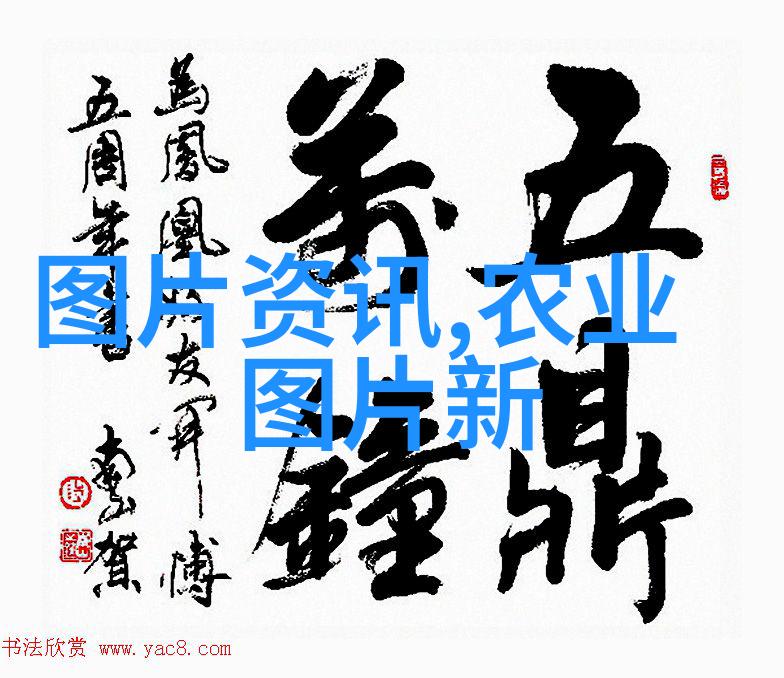 五鼎
萬鐘
為鳳凰网友開博
五周年書
南山賀
图片资讯,农业
图片新
书法欣赏 www.yac8.com